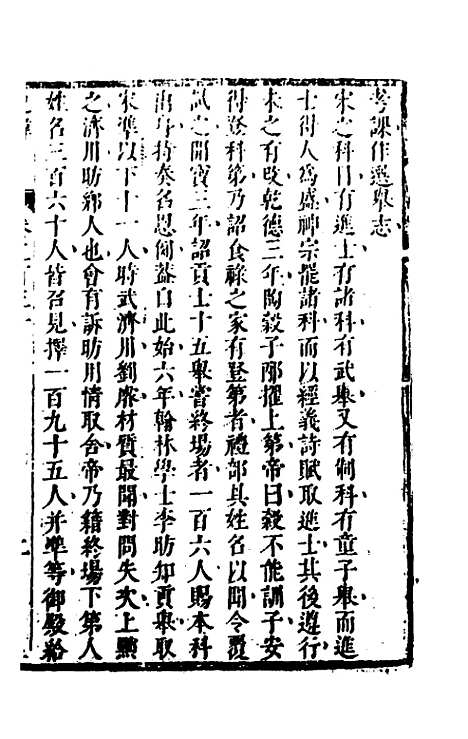 考課作選舉志
宋之科目有進士有諸科有武舉又有制科有童子舉而進
士得人爲盛神宗罷諸科而以經義詩賦取進士其後遵行
未之有改乾德三年陶穀子邴擢上第帝曰穀不能訓子安
得登科第乃詔食祿之家有登第者禮部具姓名以聞令覆
試之開寶三年詔貢士十五舉嘗終場者一百六人賜本科
出身特奏名恩例蓋自此始六年翰林學士李昉知貢舉取
宋準以下十一人時武濟川劉睿材質最陋對問失次上黜
之濟川昉鄉人也會有訴昉用情取舍帝乃籍終場下第人
姓名三百六十人皆召見擇一百九十五人并準等御殿給